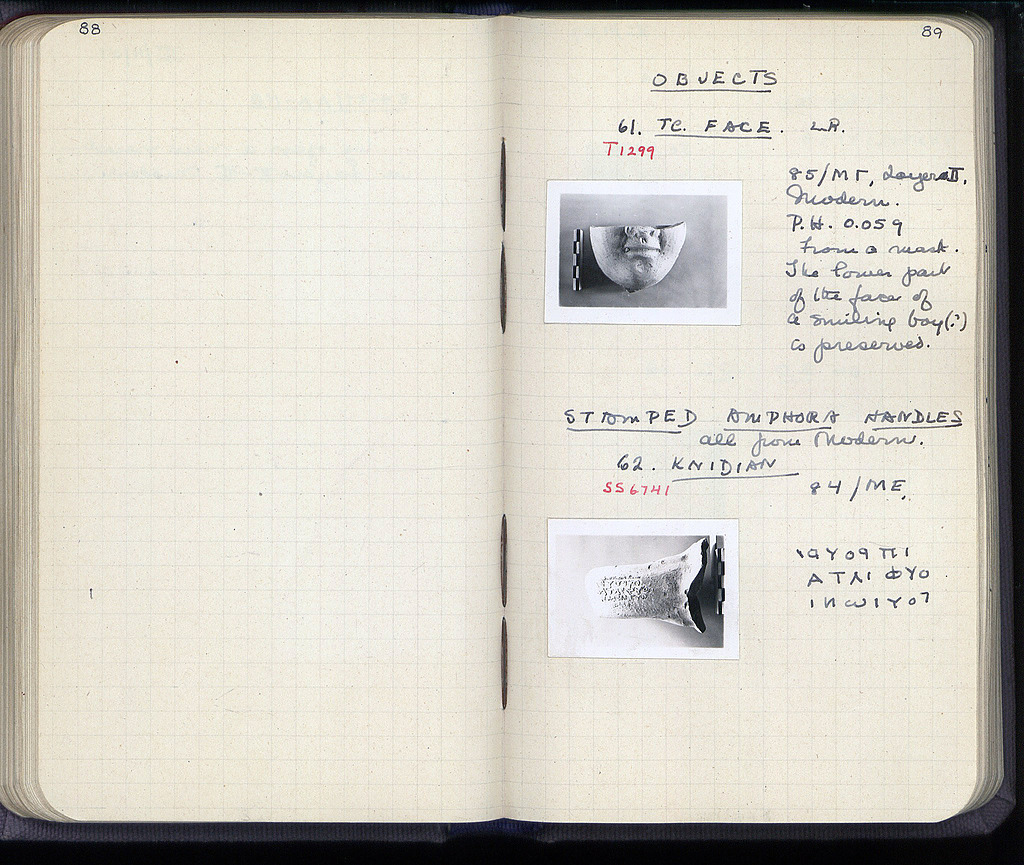 88
89
OBJECTS
61. TC. FACE. L.R.
T1299
85/ΜΓ, Layer II,
Modern.
P.H. 0.059
From a mask.
The lower part
of the face of
a smiling boy(?)
is preserved.
STAMPED AMPHORA HANDLES
all from Modern.
62. KNIDIAN
SS6741
84/ΜΕ,
ΑΤΛΙ ΦΥΟ